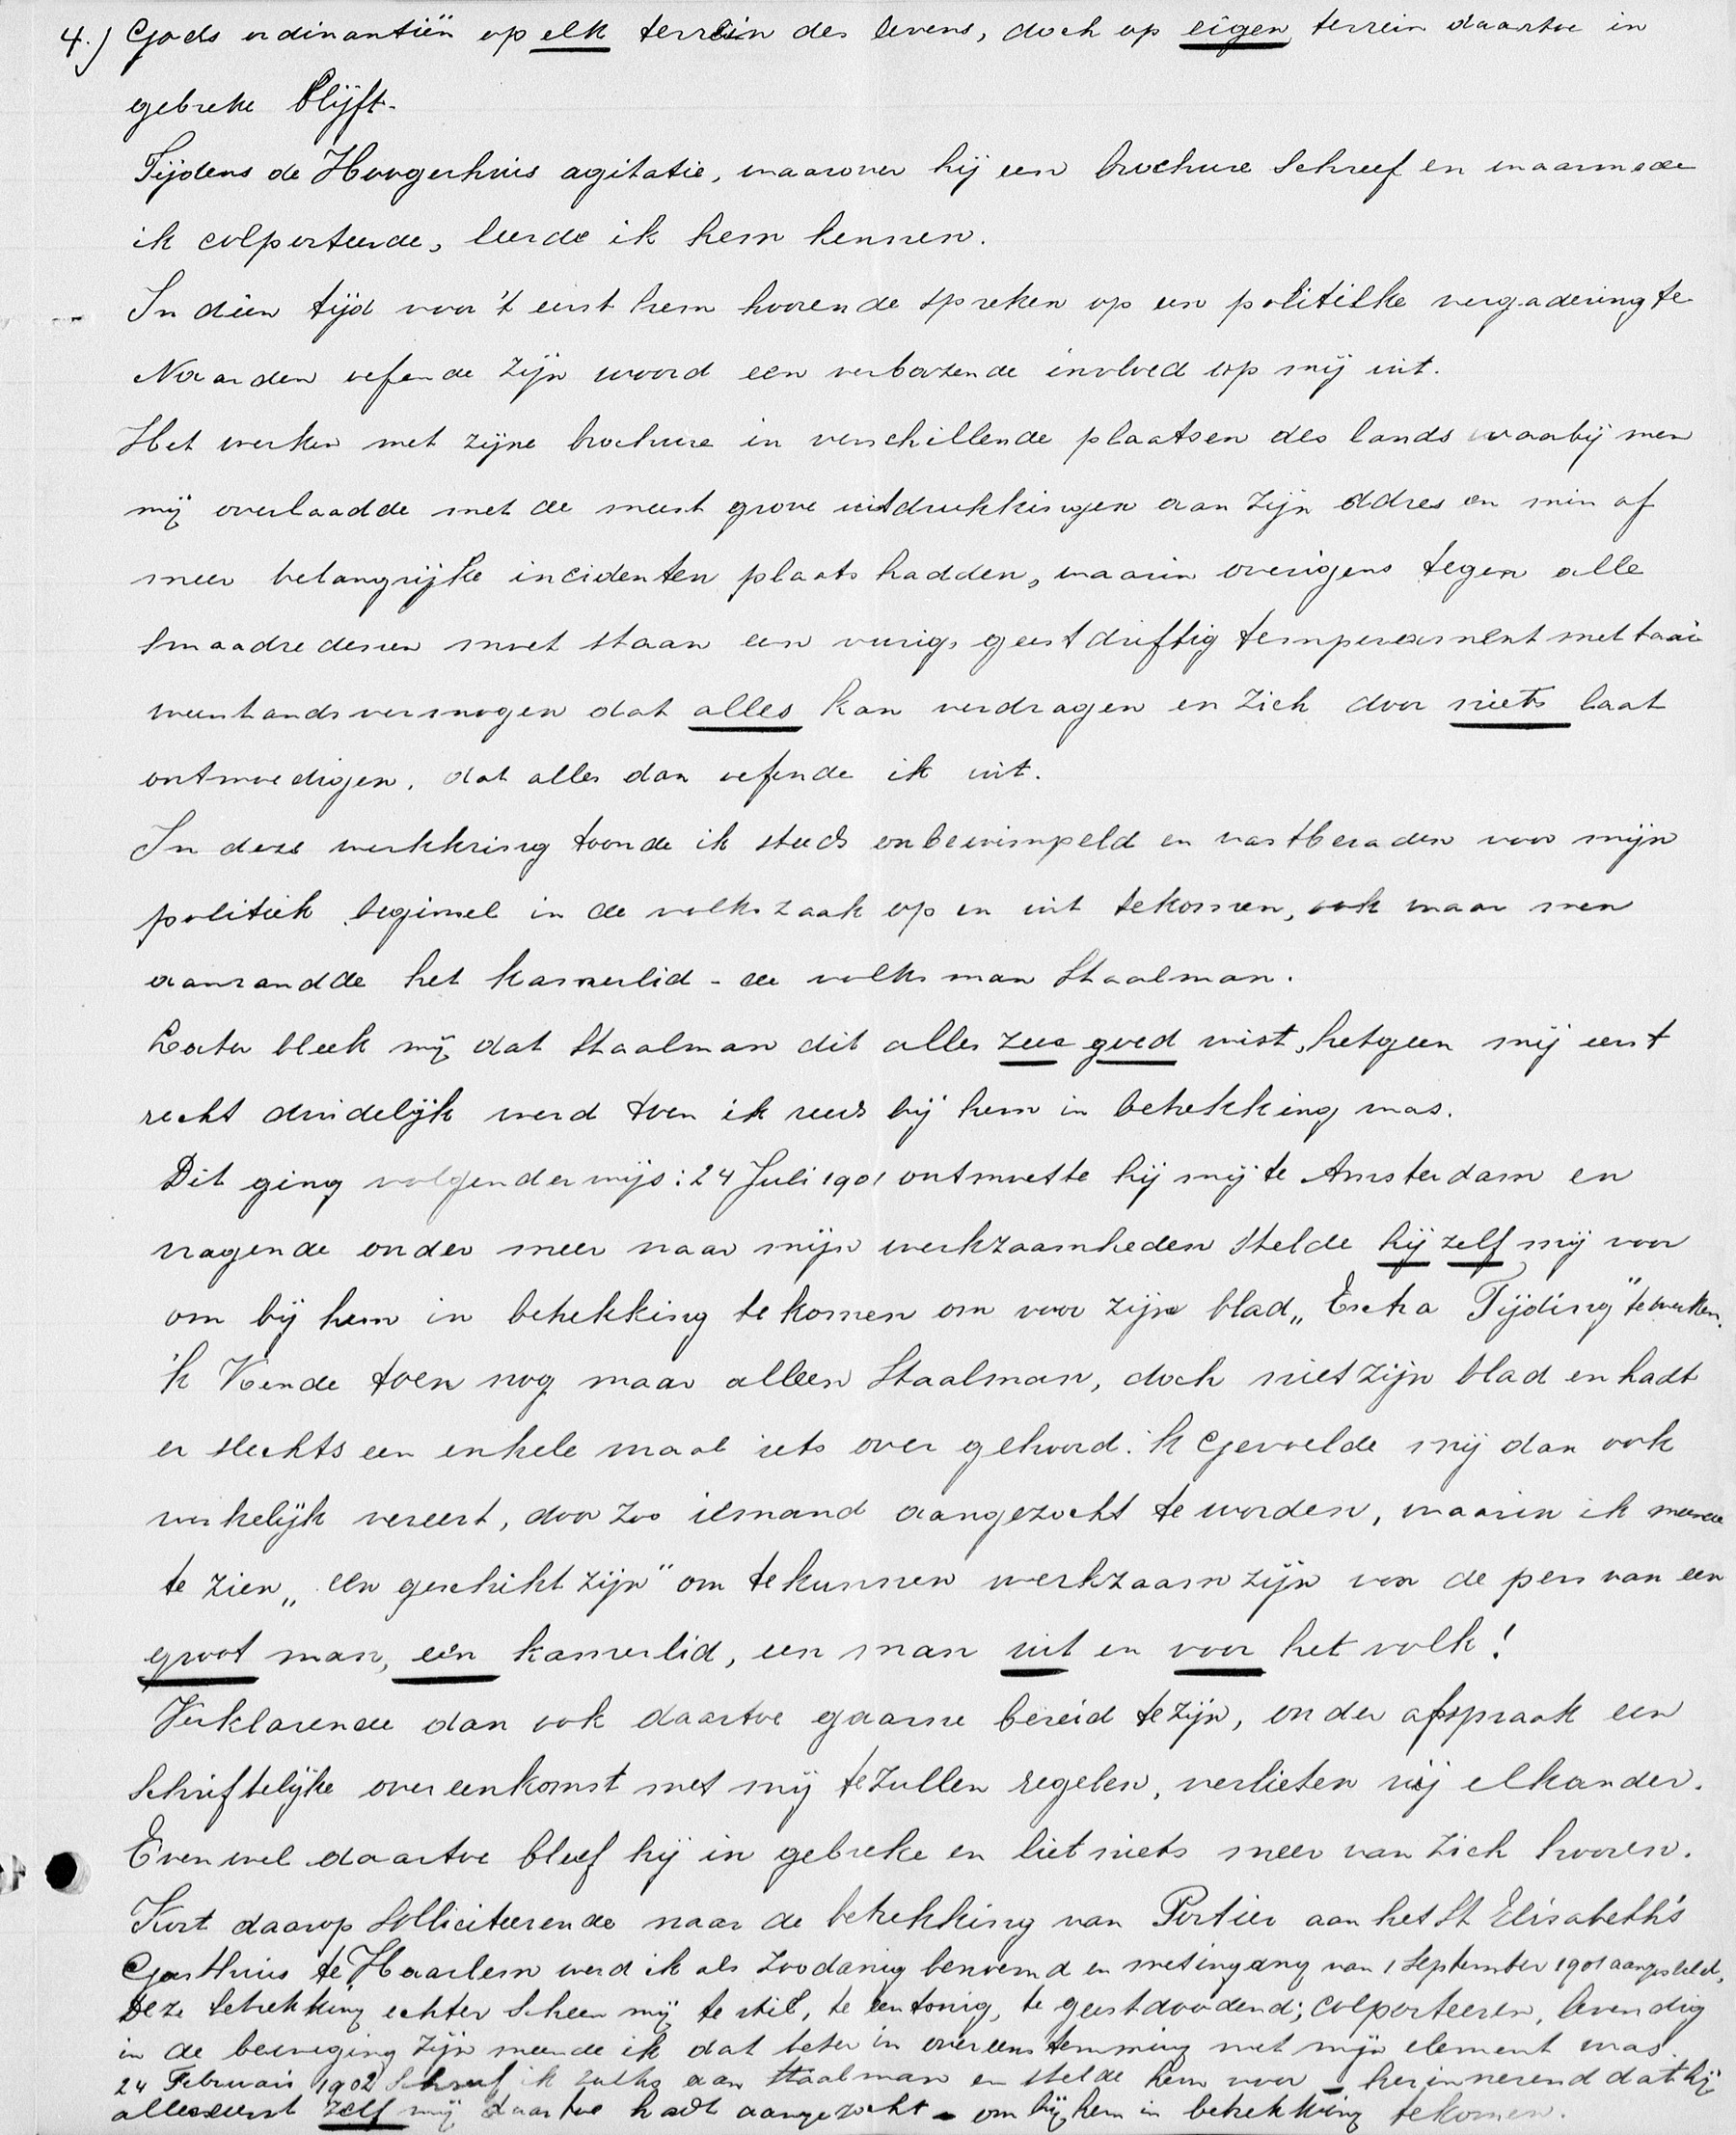 4.) Gods ordinantiën op elk terrein des levens, doch op eigen terrein daartoe in
gebreke blijft.
Tijdens de Hoogerhuis agitatie, waarover hij een brochure schreef en waarmede
ik colporteerde, leerde ik hem kennen.
In dien tijd voor 't eerst hem hoorende spreken op een politieke vergadering te
Naarden oefende zijn woord een verbazende invloed op mij uit.
Het werken met zijne brochure in verschillende plaatsen des lands waarbij men
mij overlaadde met de meest grove uitdrukkingen aan zijn addres en min of
meer belangrijke incidenten plaats hadden, waarin overigens tegen alle
smaadredenen moet staan een vurig, geestdriftig temperament met taai
weerstandsvermogen dat alles kan verdragen en zich door niets laat
ontmoedigen, dat alles dan oefende ik uit.
In deze werkkring toonde ik steeds onbewimpeld en vastberaden voor mijn
politiek beginsel in de volkszaak op en uit tekomen, ook waar men
aanrandde het kamerlid - de volksman Staalman.
Later bleek mij dat Staalman dit alles zeer goed wist, hetgeen mij eerst
recht duidelijk werd toen ik reeds bij hem in betrekking was.
Dit ging volgenderwijs: 24 Juli 1901 ontmoette hij mij te Amsterdam en
vragende onder meer naar mijn werkzaamheden stelde hij zelf mij voor
om bij hem in betrekking te komen om voor zijne blad „Extra Tijding" te werken.
'k Kende toen nog maar alleen Staalman, doch niet zijn blad en hadt
er slechts een enkele maal iets over gehoord. 'k Gevoelde mij dan ook
werkelijk vereert, door zoo iemand aangezocht te worden, waarin ik meende
te zien „een geschikt zijn" om te kunnen werkzaam zijn voor de pers van een
groot man, eén kamerlid, een man uit en voor het volk!
Verklarende dan ook daartoe gaarne bereid te zijn, onder afspraak een
schriftelijke overeenkomst met mij te zullen regelen, verlieten wij elkander.
Evenwel daartoe bleef hij in gebreke en liet niets meer van zich hooren.
Kort daarop solliciteerende naar de betrekking van Portier aan het St Elisabeth's
Gasthuis te Haarlem werd ik als zoodanig benoemd en met ingang van 1 September 1901 aangesteld,
Deze betrekking echter scheen mij te stil, te eentonig, te geestdoodend; colporteeren, levendig
in de beweging zijn meende ik dat beter in overeenstemming met mijn element was.
24 Februari 1902 schreef ik zulks aan Staalman en stelde hem voor - herinnerend dat hij
allereerst zelf mij daartoe hadt aangezocht - om bij hem in betrekking tekomen.